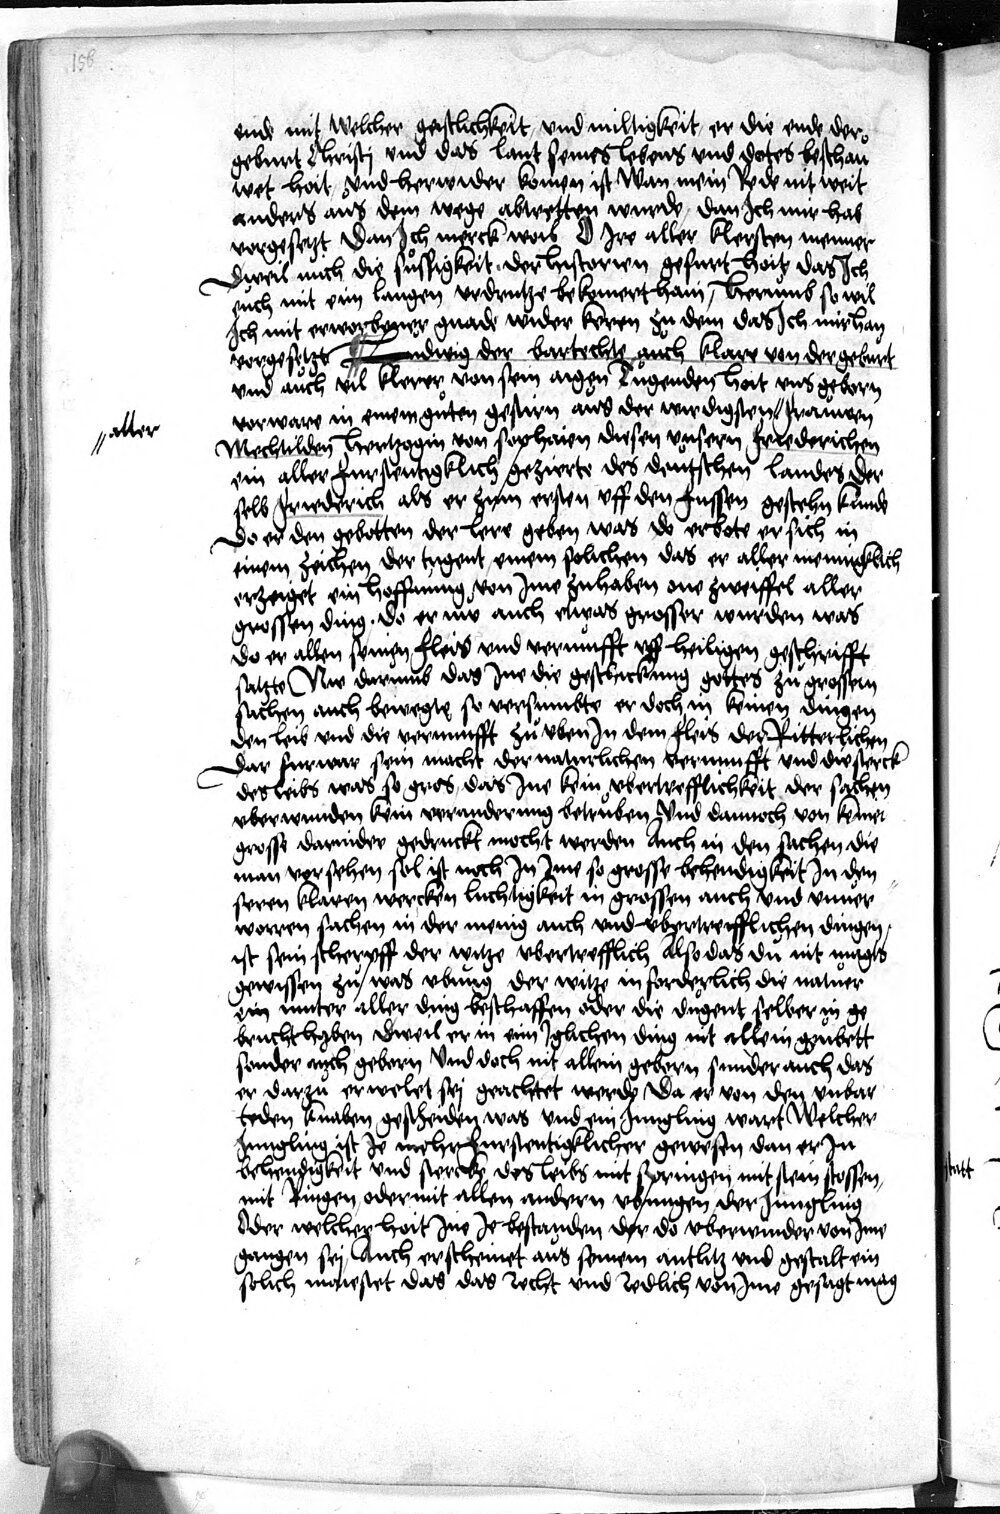 158
ende mit welcher geistlichkeit und miltigkeit er die ende der
geburt Christi und das lant seines lebens und dotes beschau
wet hoit und herwider komen ist Wan mein Rede nit weit
anders aus dem wege abtretten wurde dan Ich mir hab
vorgesetzt Dan Ich merck wol O Ire aller klersten menner
Dweil mich die sussigkeit der historien gefurt hoit das Ich
euch mit eim langen verdrutze bekomert hain herumb so wil
Ich mit erworbener gnade wider keren zu dem das Ich mir han
vorgesetzt Ludwig der bartechte auch klare von der geburt
und auch vil klerer von sein aigen Tugenden hoit uns geborn
vorware in einem guten gestirn aus der wirdigsten frauwen
Mechtilden hertzogin von sophaien diesen unsern Friederichen
ein aller furstentigklich gezierte des deutschen landes Der
selb Friederich als er zum ersten uff den fussen gestehn kunde
Do er den gebotten der lere geben was do erbote er sich in
einem zeichen der tugent einem solichen das er aller meningklich
erzeiget ein hoffnung von Ime zuhaben one zweiffel aller
grossen ding. Do er nu auch etwas grosser wurden was
do er allen seinen fleis und vernufft uff heiligen geschrifft
satzte Nie darumb das Ine die geschickung gottes zu grossern
sachen auch bewegte so versumbte er doch in keinen dingen
den leib und die vernunfft zu uben In dem fleis der Ritterlichen
Dar furwar sein macht der naturlichen vernunfft und die sterck
des leibs was so gros das Ine kein ubertrefflichkeit der sachen
uberwinden kein veranderung betruben Und dannoch von keiner
grosse darnider gedruckt mocht werden Auch in den sachen die
man versehen sol ist noch In Ime so grosse behendigkeit In den
seren klaren wercken luchtigkeit in grossen auch und unuer
worren sachen in der menig auch und ubertrefflichen dingen
ist sein scherpff der witze ubertrefflich Also das du nit magst
gewissen zu was ubung der witze in forderlich die natuer
ein muter aller ding beschaffen oder die dugent selber in ge
bracht haben Dweil er in eim Iglichen ding nit allein geubett
sonder auch geborn Und doch nit allein geborn sunder auch das
er darzu erwelet sej geachtet werde Da er von den unbar
teden knaben gescheiden was und ein Jungling wart Welcher
Jungling ist Je mehr furstentigklicher gewesen dan er In
behendigkeit und stercke des leibs mit springen mit stein stossen
mit Ringen oder mit allen andern ubungen der Jungling
Oder welcher hoit Ine Je bestanden der do uberwinder von Ime
gangen sej Auch erscheinet aus seinem antlitz und gestalt ein
solich maiestet das das Recht und Redlich von Ime gesagt mag
// alter